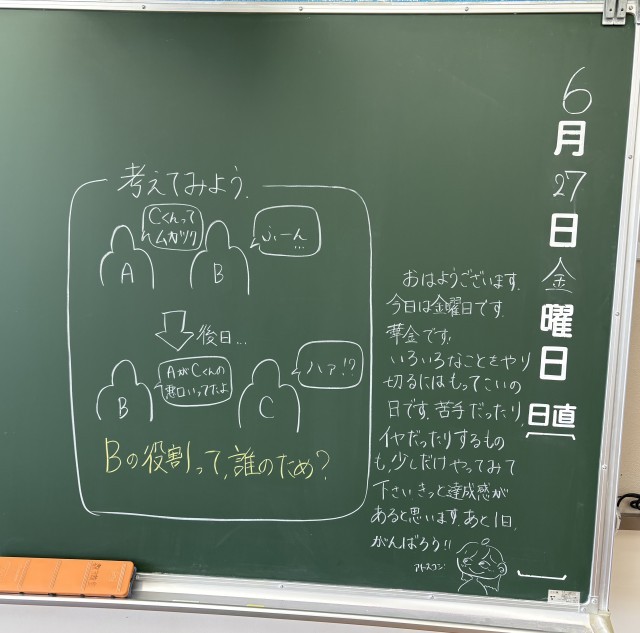 6月27日金曜日
日直
考えてみよう.
Cくんって
ムカツク
ふーん…
A
B
後日…
AがCくんの
悪口いってたよ
ハァ!?
B
C
Bの役割って,誰のため?
おはようございます.
今日は金曜日です.
華金です.
いろいろなことをやり
切るにはもってこいの
日です.苦手だったり,
イヤだったりするもの
も,少しだけやってみて
下さい.きっと達成感が
あると思います.あと1日,
がんばろう!!